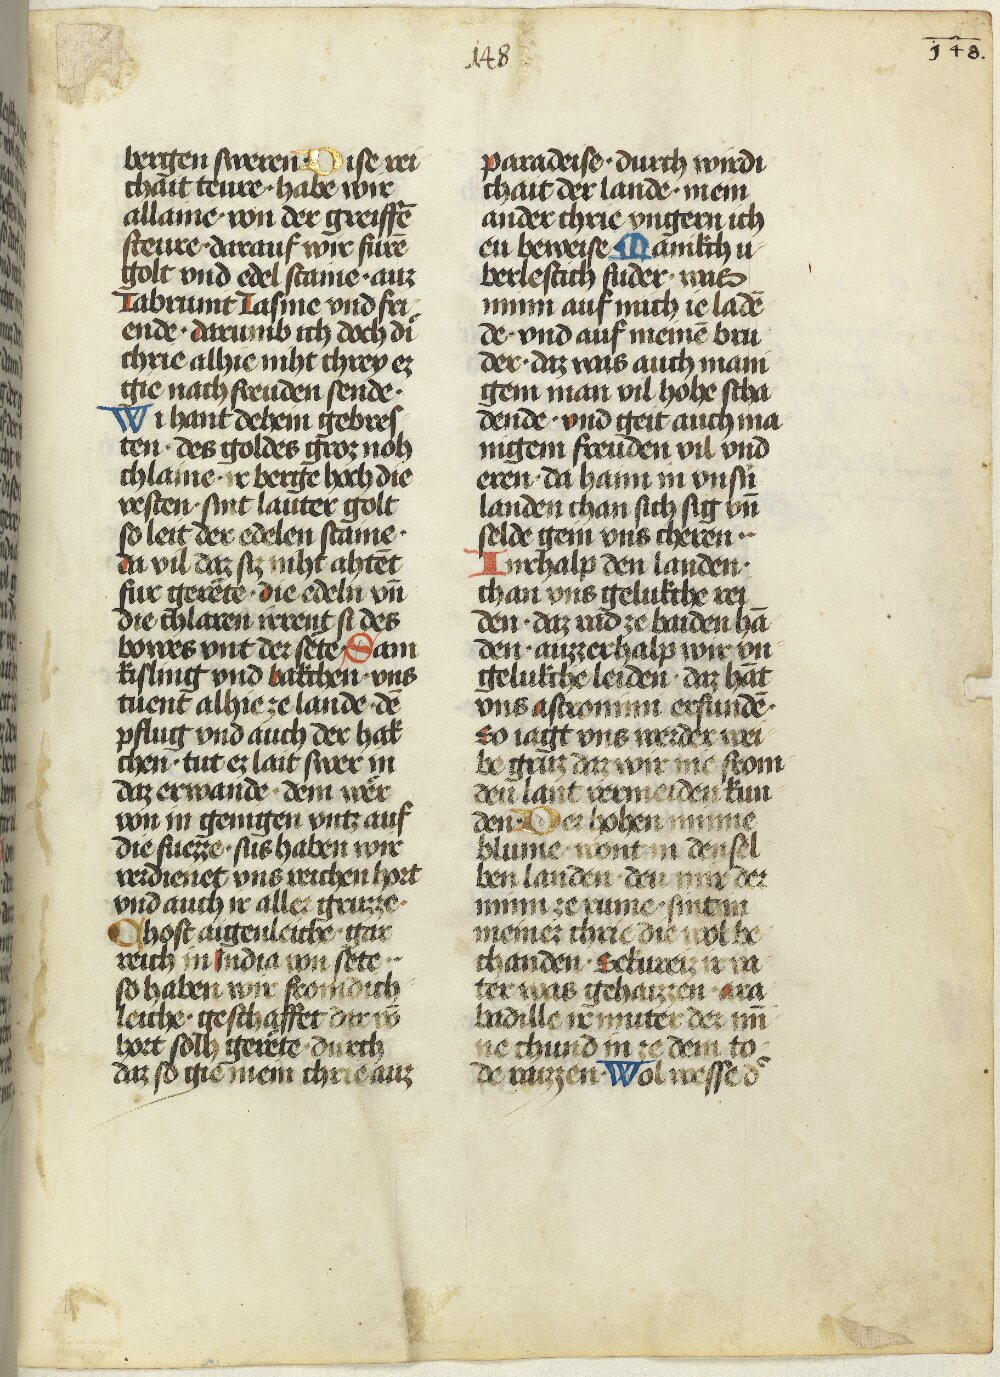 148
148.
bergen sweren· Dise rei
chait teure· habe wir
allaine· von der greiffē
steure· darauf wir fůrē
golt vnd edel staine· auz
Tabrunt Tasme vnd fri
ende· darumb ich doch di
chrie alhie niht chrey ez
gie nach freuden sende·
Wi hant dehem gebres
ten· des goldes groz noh
chlaine· ir berge hoch die
vesten· sint lauter golt
so leit der edelen staine·
da vil daz siz niht ahtēt
fur gerête· die edeln vn̄
die chlaren irrent si des
bowes vnt der sête· Sam
kisling vnd bakchen· vns
tuent alhie ze lande· dē
pflug vnd auch der hak
chen· tut ez lait swer in
daz erwande· dem wêr
von in genigen vntz auf
die fuezze· sus haben wir
verdienet vns reichen hort
vnd auch ir aller gruzze·
Chost augenleiche· gar
reich in India von sête··
so haben wir fromdich
leiche· geschaffet dar vō
hort solh gerête· durch
daz so gie mein chrie auz
paradeise· durch wirdi
chait der lande· mein
ander chrie vngern ich
eu beweise· Manikch u
berlestich suder· was
minn auf mich ie ladē
de· vnd auf meinē bru
der· daz was auch mani
gem man vil hohe scha
dende· vnd geit auch ma
nigem freuden vil vnd
eren· da haim in vnsn̄
landen chan sich sig vn̄
selde gein vns cheren··
Inrhalp den landen·
chan vns gelukche rei
den· daz rad ze baiden hā
den· auzzerhalp wir vn
gelukche leiden· daz hāt
vns astromin erfundē·
So iagt vns werder wei
be gruz daz wir nie from
den lant vermeiden kun
den· Der hohen minne
blume· wont in den sel
ben landen· den mir der
minn ze rume· sint in
meiner chrie die wol be
chanden· Sekureiz ir va
ter was gehaizzen· ara
badille ir muter der min̄
ne chund in ze dem to
de raizzen· Wol wesse d̄